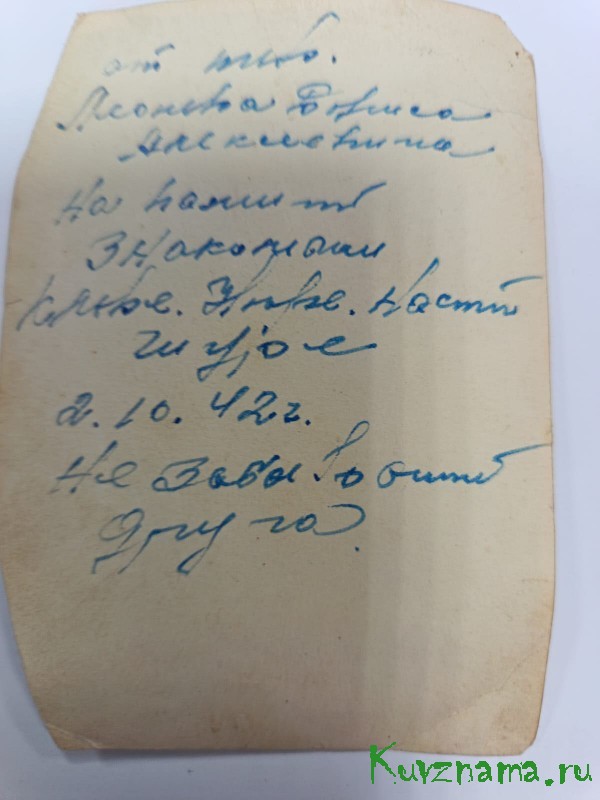 от
Леонова Бориса
Алексеевича
На памить
Знакомыи
Клаве. Нюре. Насти
Шуре
2.10.42 г.
Не забываить
друга.
Kurznama.ru